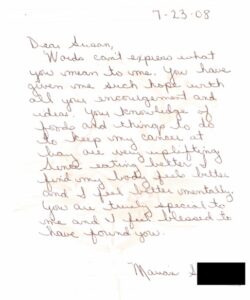 7-23-08
Dear Susan,
Words can't express what
you mean to me. You have
given me such hope with
all your encouragement and
ideas. Your knowledge of
foods and things to do
to keep my cancer at
bay are very uplifting
Since eating better I
find my body feels better
and I feel better mentally.
You are truly special to
me and I feel blessed to
have found you.
Marian S